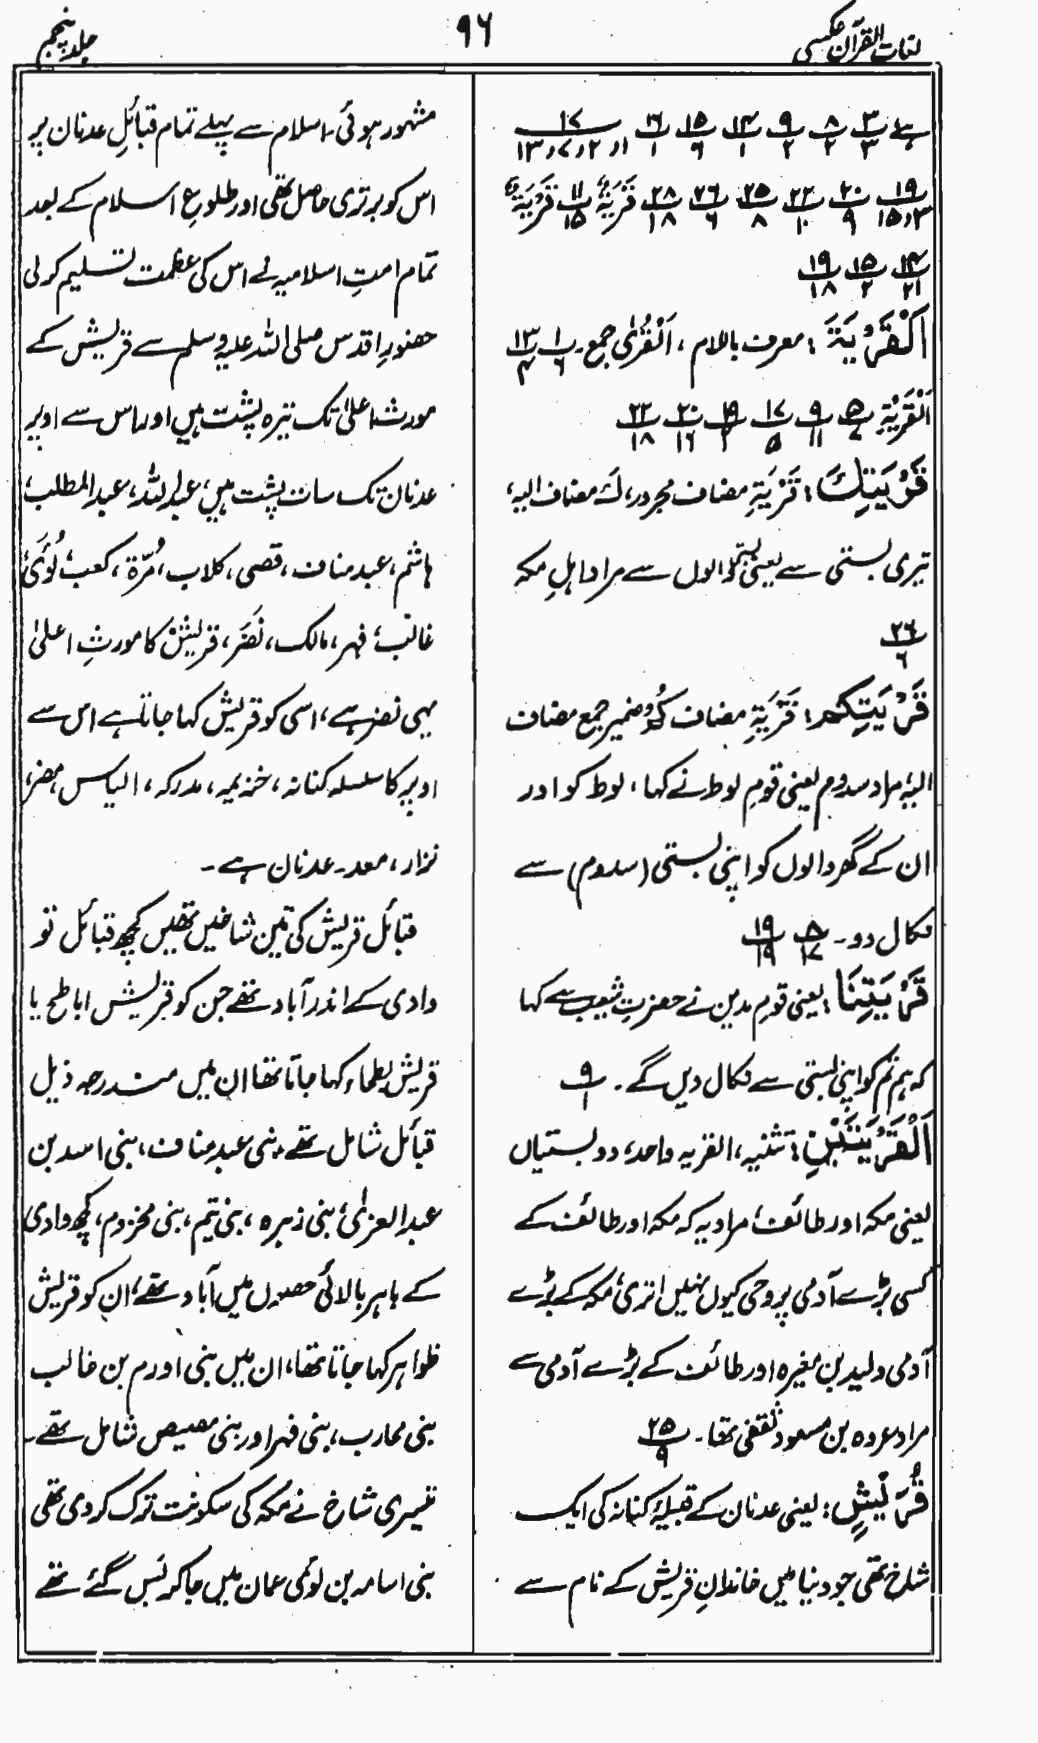 لغات القرآن عکسی
۹۶
جلد پنجم
ہے ۳/۳ ۸/۲ ۹/۲ ۱۴/۱ ۱۵/۶ ۱۶/۱ ۱۷/۱۳،۷،۲ اور
۱۹/۱۵،۳ ۲۰/۹ ۲۲/۱۰ ۲۵/۸ ۲۶/۶ ۲۸/۱۸ قَرْیَةٌ ۱۱/۱۵ قَرْیَةٍ
۱۴/۲۱ ۱۵/۲ ۱۹/۱۸
اَلْقَرْیَةَ : معرف باللام، اَلْقُرٰی جمع۔ ۱/۶ ۱۳/۴
اَلْقَرْیَةِ ۵/۷ ۹/۱۱ ۱۷/۵ ۱۹/۲ ۲۰/۱۶ ۲۲/۱۸
قَرْیَتِكَ : قَرْیَةِ مضاف مجرور، كَ مضاف الیہ،
تیری بستی سے یعنی بستی والوں سے مراد اہلِ مکہ
۲۶/۶
قَرْیَتِكُمْ : قَرْیَةِ مضاف كُمْ ضمیر جمع مضاف
الیہ، مراد سدوم یعنی قومِ لوط نے کہا، لوط کو اور
ان کے گھر والوں کو اپنی بستی (سدوم) سے
نکال دو۔ ۸/۱۷ ۱۹/۱۹
قَرْیَتِنَا : یعنی قومِ مدین نے حضرتِ شعیب سے کہا
کہ ہم تم کو اپنی بستی سے نکال دیں گے۔ ۹/۱
اَلْقَرْیَتَیْنِ : تثنیہ، القریہ واحد، دو بستیاں
یعنی مکہ اور طائف، مراد یہ کہ مکہ اور طائف کے
کسی بڑے آدمی پر وحی کیوں نہیں اتری، مکہ کے بڑے
آدمی ولید بن مغیرہ اور طائف کے بڑے آدمی سے
مراد عروہ بن مسعود ثقفی تھا۔ ۲۵/۹
قُرَیْشٍ : یعنی عدنان کے قبیلۂ کنانہ کی ایک
شاخ تھی جو دنیا میں خاندانِ قریش کے نام سے
مشہور ہوئی۔ اسلام سے پہلے تمام قبائلِ عدنان پر
اس کو برتری حاصل تھی اور طلوعِ اسلام کے بعد
تمام امتِ اسلامیہ نے اس کی عظمت تسلیم کر لی
حضورِ اقدس صلی اللہ علیہ وسلم سے قریش کے
مورث اعلیٰ تک تیرہ پشت ہیں اور اس سے اوپر
عدنان تک سات پشت ہیں، عبد اللہ، عبد المطلب،
ہاشم، عبد مناف، قصی، کلاب، مُرّة، کعب، لُؤَیّ،
غالب، فہر، مالک، نَضَر، قریش کا مورثِ اعلیٰ
یہی نضر ہے، اسی کو قریش کہا جاتا ہے اس سے
اوپر کا سلسلہ کنانہ، خزیمہ، مدرکہ، الیاس، مضر،
نزار، معد۔ عدنان ہے۔
قبائل قریش کی تین شاخیں تھیں کچھ قبائل تو
وادی کے اندر آباد تھے جن کو قریش اباطح یا
قریش بطحاء کہا جاتا تھا ان میں مندرجہ ذیل
قبائل شامل تھے، بنی عبد مناف، بنی اسد بن
عبد العزیٰ، بنی زہرہ، بنی تیم، بنی مخزوم، کچھ وادی
کے باہر بالائی حصوں میں آباد تھے، ان کو قریش
ظواہر کہا جاتا تھا، ان میں بنی ادرم بن غالب
بنی محارب، بنی فہر اور بنی معیص شامل تھے۔
تیسری شاخ نے مکہ کی سکونت ترک کر دی تھی
بنی اسامہ بن لوئی عمان میں جا کر بس گئے تھے